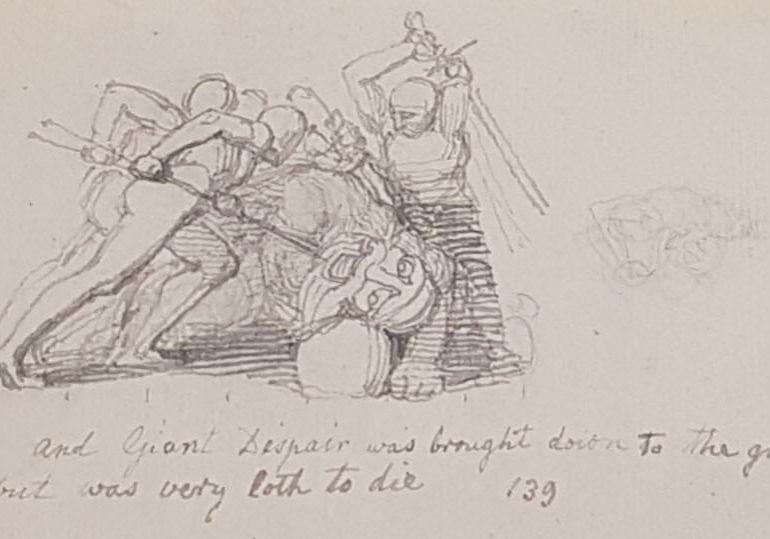 and Giant Despair was brought down to the
but was very loth to die 139